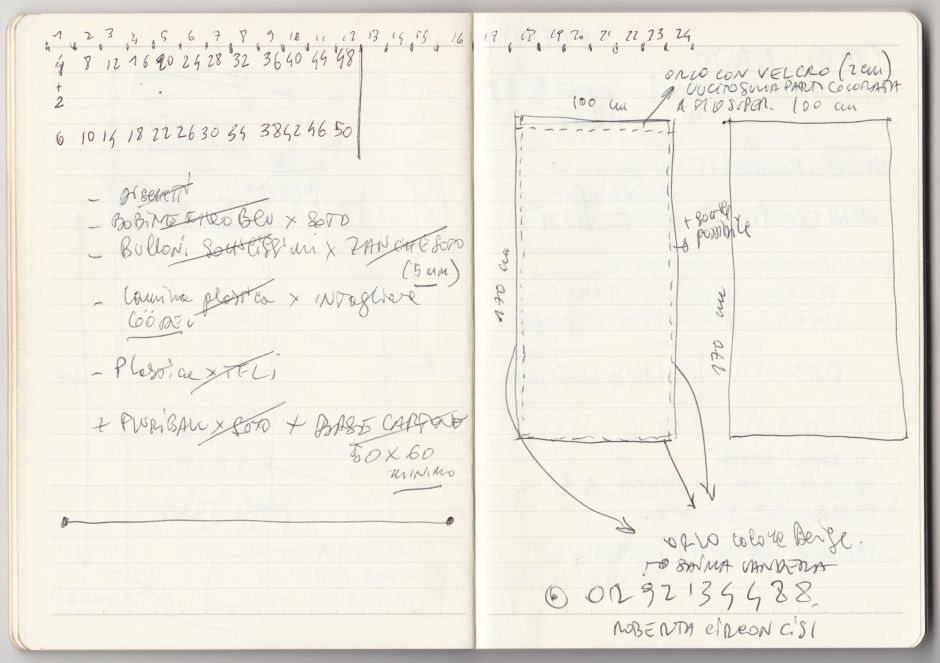 1 2 3 4 5 6 7 8 9 10 11 12 13 14 15 16
4 8 12 16 20 24 28 32 36 40 44 48
+
2
6 10 14 18 22 26 30 34 38 42 46 50
- 
- BOBINE BLU x SOTO
- BULLONI x ZANCHE SOTO
(5 mm)
- Lamina plastica x intagliare
- Plastica x TELI
+ PLURIBALL x SOTO + BASE CARTONE
50 x 60
MINIMO
17 18 19 20 21 22 23 24
ORLO CON VELCRO (2cm)
CUCITO SULLA PARTE COLORATA
A FILO SUPER.
100 cm
100 cm
+
possibile
170 cm
170 cm
ORLO colore Beige.
0292134488.
ROBERTA